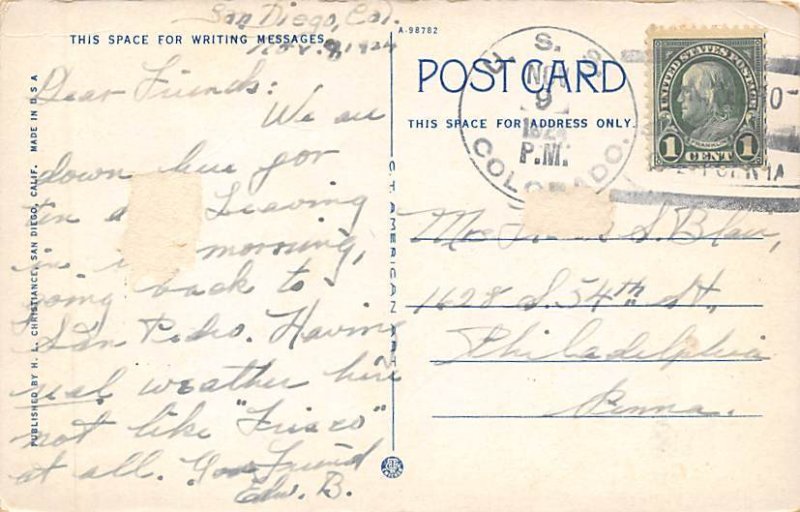 San Diego, Cal.
Nov. 9, 1924
THIS SPACE FOR WRITING MESSAGES
A-98782
Dear Friends:
We are
down here for
ten
Leaving
in morning,
going back to
San Pedro. Having
real weather here
not like "Frisco"
at all. Your Friend
Edw. B.
PUBLISHED BY H. L. CHRISTIANCE, SAN DIEGO, CALIF. MADE IN U S A
C.T. AMERICAN ART
POST CARD
THIS SPACE FOR ADDRESS ONLY.
U. S. S.
NOV
9
P.M.
COLORADO.
UNITED STATES POSTAGE
FRANKLIN
1 CENT 1
S. Blair,
1628 S. 54th St.
Philadelphia
Penna.